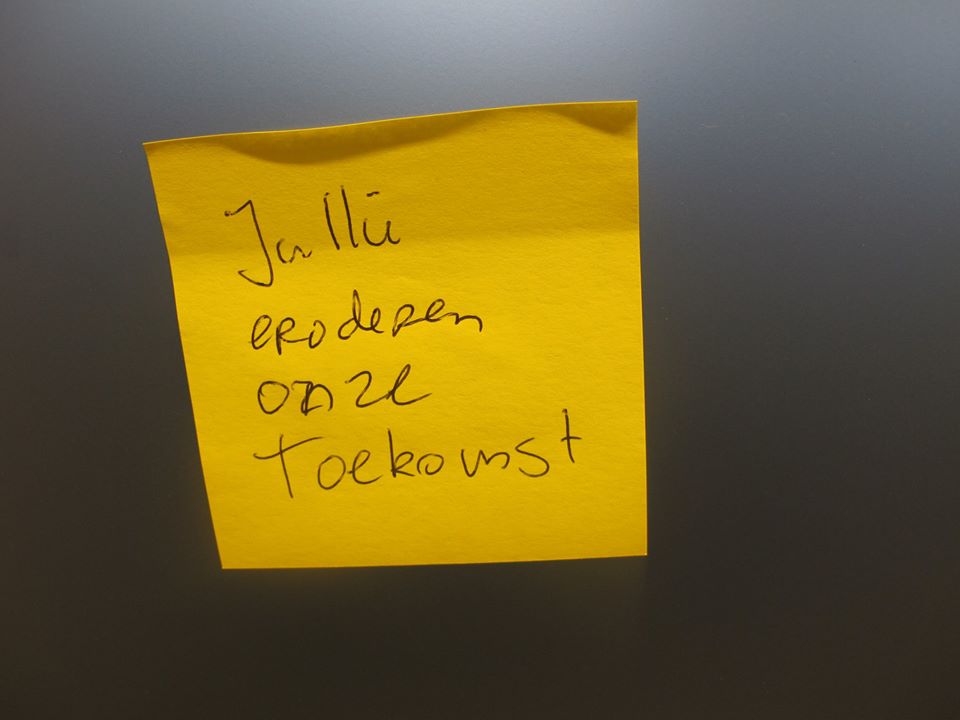 Jullie
eroderen
onze
toekomst